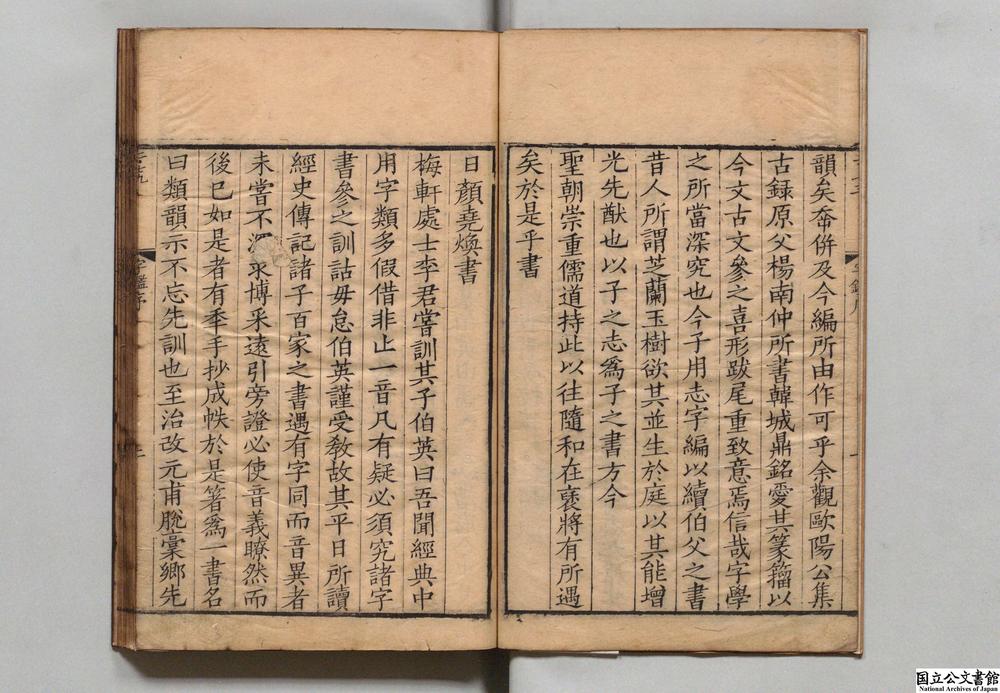 韻矣奄併及今編所由作可乎余觀歐陽公集
古録原父楊南仲所書韓城鼎銘愛其篆籀以
今文古文參之喜形跋尾重致意焉信哉字學
之所當深究也今子用志字編以續伯父之書
昔人所謂芝蘭玉樹欲其並生於庭以其能增
光先猷也以子之志爲子之書方今
聖朝崇重儒道持此以往隨和在褎將有所遇
矣於是乎書
日顏堯煥書
梅軒處士李君嘗訓其子伯英曰吾聞經典中
用字類多假借非止一音凡有疑必須究諸字
書參之訓詁毋怠伯英謹受敎故其平日所讀
經史傳記諸子百家之書遇有字同而音異者
未嘗不深求博采遠引旁證必使音義瞭然而
後已如是者有秊手抄成帙於是著爲一書名
曰類韻示不忘先訓也至治改元甫脫稾鄉先
字鑑序
国立公文書館
National Archives of Japan